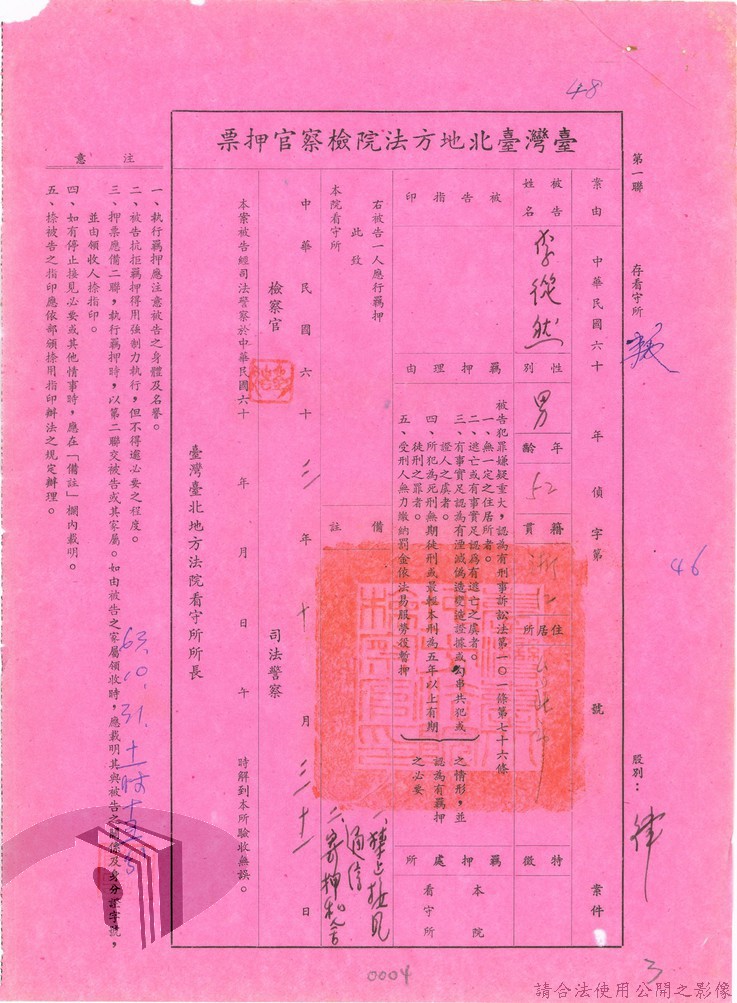 48
第一聯　存看守所
股別：律
臺灣臺北地方法院檢察官押票
案由
中華民國六十　年偵字第　號
案件
被告姓名
李從然
性別
男
年齡
52
籍貫
浙江
住居所
特徵
被告指印
羈押理由
被告犯罪嫌疑重大，認為有刑事訴訟法第一〇一條第七十六條
一、無一定之住居所者。
二、逃亡或有事實足認為有逃亡之虞者。
三、有事實足認為有湮滅偽造變造證據或勾串共犯或
證人之虞者。
四、所犯為死刑無期徒刑或最輕本刑為五年以上有期
徒刑之罪者。
五、受刑人無力繳納罰金依法易服勞役暫押
之情形，並
認為有羈押
之必要
羈押處所
本院
看守所
右被告一人應行羈押
此致
本院看守所
備註
一、禁止接見
通信
二、寄押和舍
中華民國六十三年十月三十一日
檢察官
司法警察
本案被告經司法警察於中華民國六十　年　月　日　午　時解到本所驗收無誤。
臺灣臺北地方法院看守所所長
63.10.31.十一時十五分
注意
一、執行羈押應注意被告之身體及名譽。
二、被告抗拒羈押得用強制力執行，但不得逾必要之程度。
三、押票應備二聯，執行羈押時，以第二聯交被告或其家屬。如由被告之家屬領收時，應載明其與被告之關係及身分證字號，
並由領收人捺指印。
四、如有停止接見必要或其他情事時，應在「備註」欄內載明。
五、捺被告之指印應依部頒捺用指印辦法之規定辦理。
46
3
0004
請合法使用公開之影像